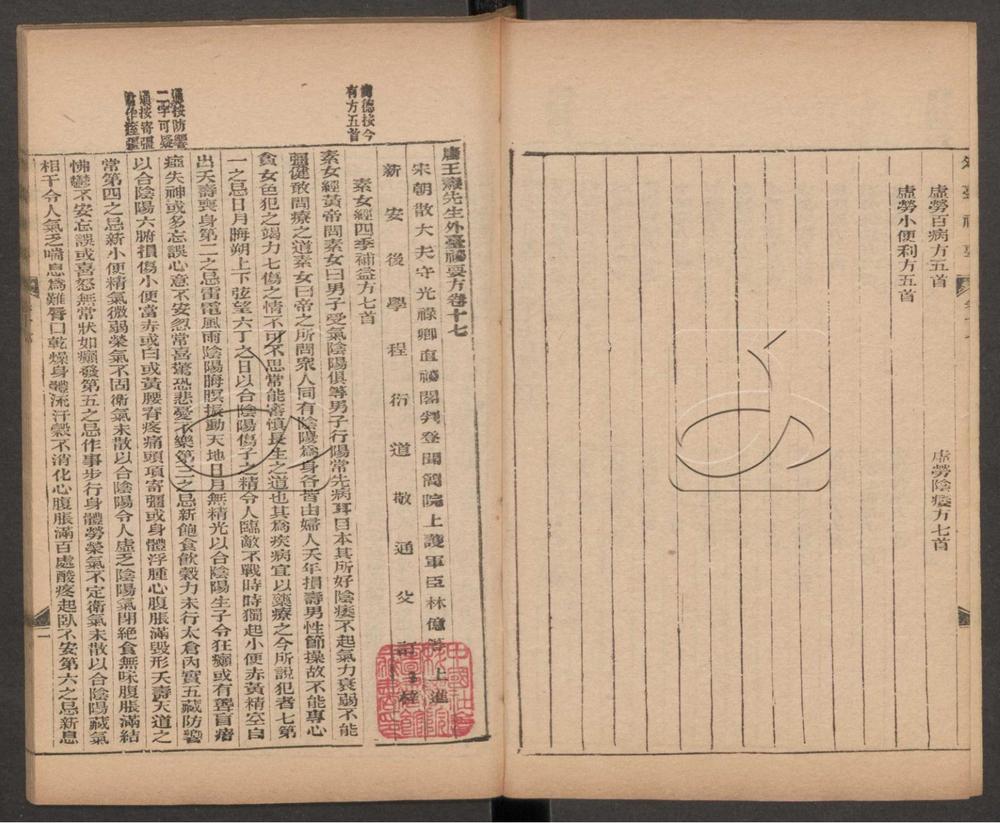 虛勞百病方五首
虛勞陰痿方七首
虛勞小便利方五首
唐王燾先生外臺祕要方卷十七
宋朝散大夫守光祿卿直祕閣判登聞簡院上護軍臣林億等上進
新安後學程衍道敬通父
素女經四季補益方七首
尚德按今
有方五首
素女經黃帝問素女曰男子受氣陰陽俱等男子行陽常先病耳目本其所好陰痿不起氣力衰弱不能
彊健敢問療之道素女曰帝之所問衆人同有陰陽爲身各皆由婦人夭年損壽男性節操故不能專心
貪女色犯之竭力七傷之情不可不思常能審慎長生之道也其爲疾病宜以藥療之今所說犯者七第
一之忌日月晦朔上下弦望六丁之日以合陰陽傷子之精令人臨敵不戰時時獨起小便赤黃精空自
出夭壽喪身第二之忌雷電風雨陰陽晦暝振動天地日月無精光以合陰陽生子令狂癲或有聾盲瘖
瘂失神或多忘誤心意不安忽常喜驚恐悲憂不樂第三之忌新飽食飲穀力未行太倉內實五藏防響
以合陰陽六腑損傷小便當赤或白或黃腰脊疼痛頭項寄彊或身體浮腫心腹脹滿毀形夭壽天道之
常第四之忌新小便精氣微弱榮氣不固衛氣未散以合陰陽令人虛乏陰陽氣閉絕食無味腹脹滿結
怫鬱不安忘誤或喜怒無常狀如癲發第五之忌作事步行身體勞榮氣不定衛氣未散以合陰陽藏氣
相干令人氣乏喘息爲難脣口乾燥身體流汗穀不消化心腹脹滿百處酸疼起臥不安第六之忌新息
通按防響
二字可疑
通按寄彊
一